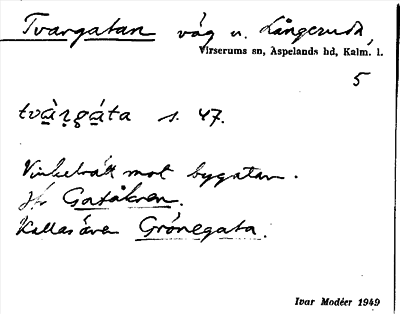 Tvargatan väg u. Långerudh,
Virserums sn, Aspelands hd, Kalm. l.
5
tvàrgáta s. 47.
Vinkelrätt mot bygatan.
Jfr Gatåkren.
Kallas även Grönegata.
Ivar Modéer 1949